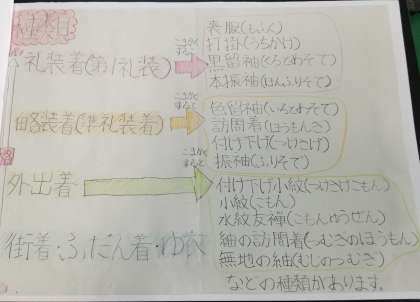 種類
礼装着(第1礼装)
こまかく
すると
喪服(もふく)
打掛(うちかけ)
黒留袖(くろとめそで)
本振袖(ほんふりそで)
略装着(準礼装着)
こまかく
すると
色留袖(いろとめそで)
訪問着(ほうもんぎ)
付け下げ(つけさげ)
振袖(ふりそで)
外出着
こまかく
すると
付け下げ小紋(つけさげこもん)
小紋(こもん)
小紋友禅(こもんゆうぜん)
紬の訪問着(つむぎのほうもん)
無地の紬(むじのつむぎ)
などの種類があります。
街着・ふだん着・ゆかた